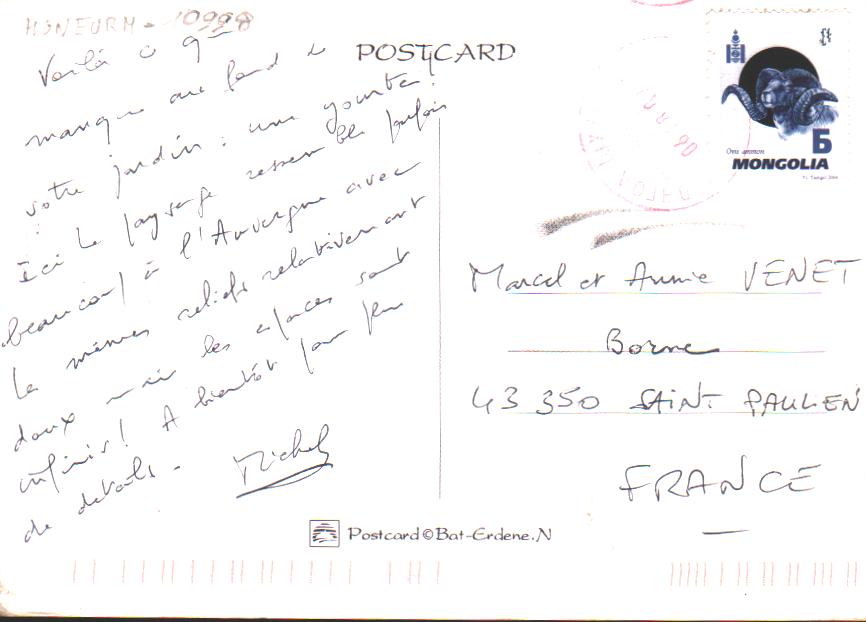 MONEURM - 10998
POSTCARD
Voilà ce q
manque au fond de
votre jardin : une yourte !
Ici le paysage ressemble parfois
beaucoup à l'Auvergne avec
les mêmes reliefs relativement
doux mais les espaces sont
infinis ! A bientôt pour plus
de détails -
Michel
MONGOLIA
Б
Ovis ammon
Marcel et Annie VENET
Borne
43 350 SAINT PAULIEN
FRANCE
Postcard©Bat-Erdene.N